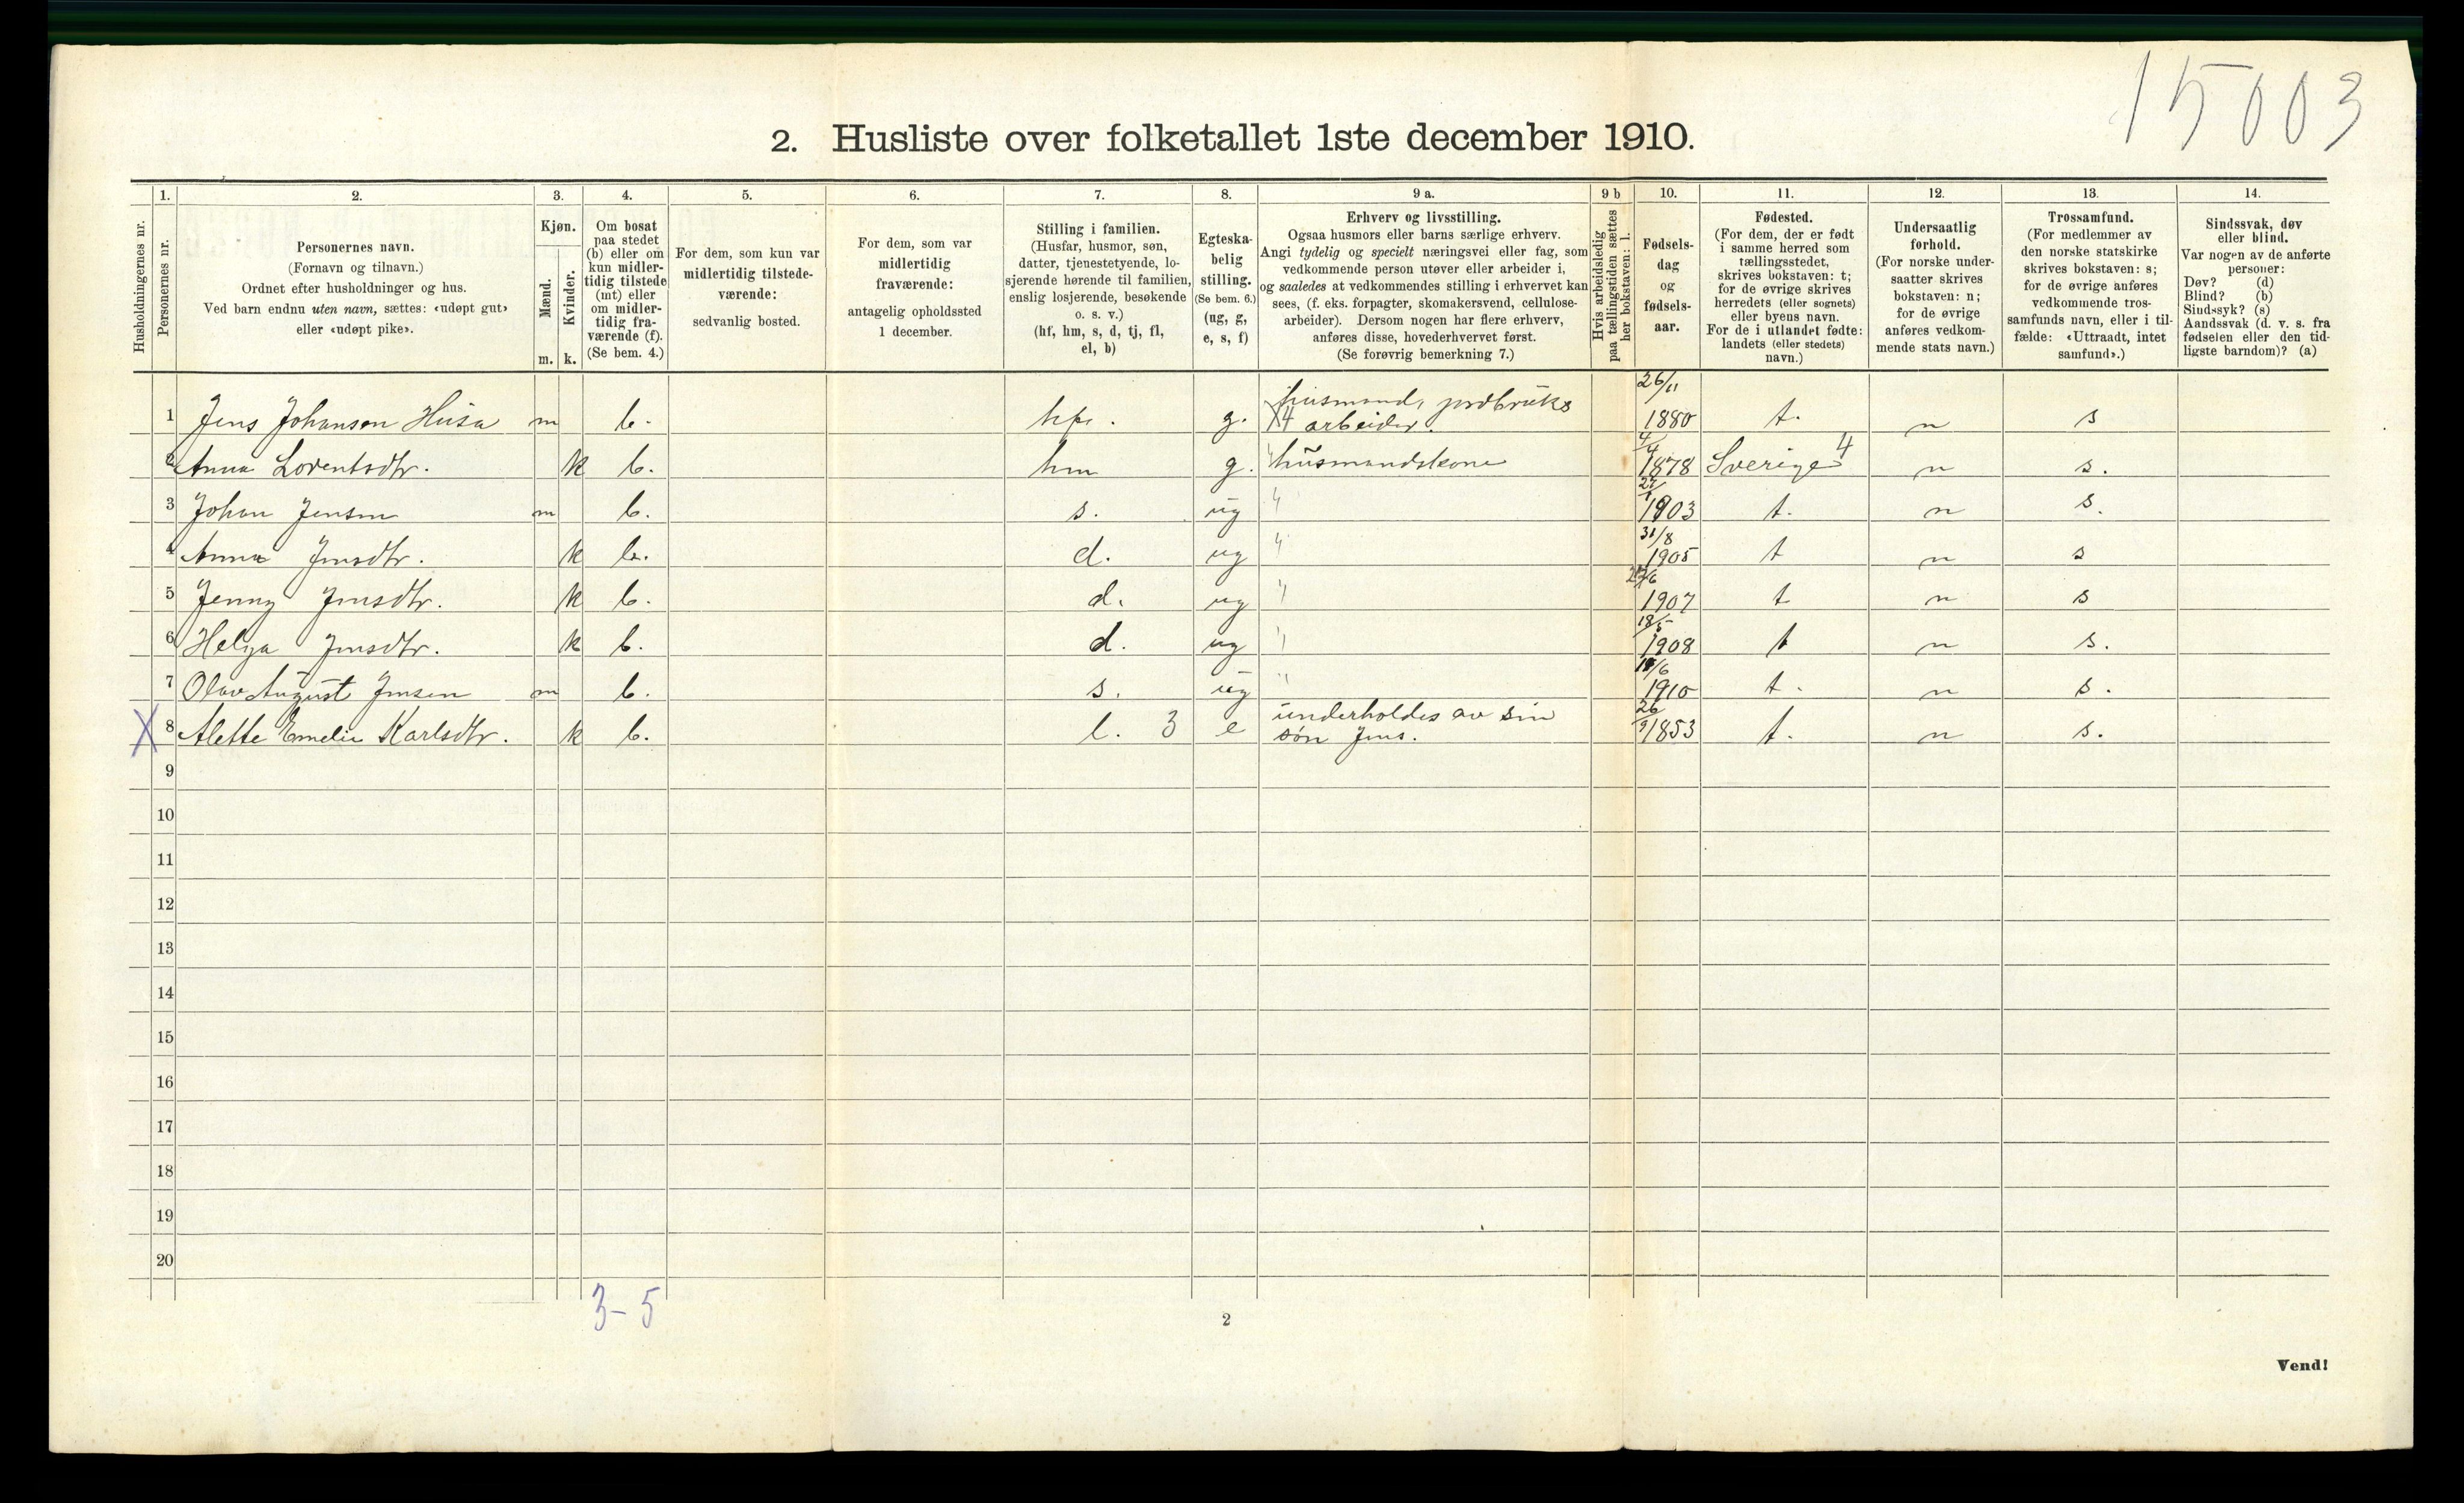 15003
2. Husliste over folketallet 1ste december 1910.
Husholdningernes nr.
1.
Personernes nr.
2.
Personernes navn.
(Fornavn og tilnavn.)
Ordnet efter husholdninger og hus.
Ved barn endnu uten navn, sættes: «udøpt gut»
eller «udøpt pike».
3.
Kjøn.
Mænd.
Kvinder.
m. k.
4.
Om bosat
paa stedet
(b) eller om
kun midler-
tidig tilstede
(mt) eller
om midler-
tidig fra-
værende (f).
(Se bem. 4.)
5.
For dem, som kun var
midlertidig tilstede-
værende:
sedvanlig bosted.
6.
For dem, som var
midlertidig
fraværende:
antagelig opholdssted
1 december.
7.
Stilling i familien.
(Husfar, husmor, søn,
datter, tjenestetyende, lo-
sjerende hørende til familien,
enslig losjerende, besøkende
o. s. v.)
(hf, hm, s, d, tj, fl,
el, b)
8.
Egteska-
belig
stilling.
(Se bem. 6.)
(ug, g,
e, s, f)
9 a.
Erhverv og livsstilling.
Ogsaa husmors eller barns særlige erhverv.
Angi tydelig og specielt næringsvei eller fag, som
vedkommende person utøver eller arbeider i,
og saaledes at vedkommendes stilling i erhvervet kan
sees, (f. eks. forpagter, skomakersvend, cellulose-
arbeider). Dersom nogen har flere erhverv,
anføres disse, hovederhvervet først.
(Se forøvrig bemerkning 7.)
9 b
Hvis arbeidsledig
paa tællingstiden sættes
her bokstaven: l.
10.
Fødsels-
dag
og
fødsels-
aar.
11.
Fødested.
(For dem, der er født
i samme herred som
tællingsstedet,
skrives bokstaven: t;
for de øvrige skrives
herredets (eller sognets)
eller byens navn.
For de i utlandet fødte:
landets (eller stedets)
navn.)
12.
Undersaatlig
forhold.
(For norske under-
saatter skrives
bokstaven: n;
for de øvrige
anføres vedkom-
mende stats navn.)
13.
Trossamfund.
(For medlemmer av
den norske statskirke
skrives bokstaven: s;
for de øvrige anføres
vedkommende tros-
samfunds navn, eller i til-
fælde: «Uttraadt, intet
samfund».)
14.
Sindssvak, døv
eller blind.
Var nogen av de anførte
personer:
Døv? (d)
Blind? (b)
Sindssyk? (s)
Aandssvak (d. v. s. fra
fødselen eller den tid-
ligste barndom)? (a)
husmand, jordbruks 26/11
1 Jens Johansen Husa m b. g. X4 arbeider. 1880 t. n s
2 Anna Lorentsdtr. k b. hm g. husmandskone 4/4 1878 Sverige 4 n s.
3 Johan Jensen m b. s. ug " 1903 t. n s.
4 Anna Jensdtr. k b. d. ug " 31/8 1905 t n s
5 Jenny Jensdtr. k b. d. ug " 1907 t n s
6 Helga Jensdtr. k b. d. ug " 18/5 1908 t n s.
7 Olav August Jensen m b. s. ug " 1910 t. n s.
underholdes av sin
X 8 Alette Emelie Karlsdtr. k b. l. 3 e søn Jens. 26/9 1853 t. n s.
9
10
11
12
13
14
15
16
17
18
19
20
3-5
2
Vend!